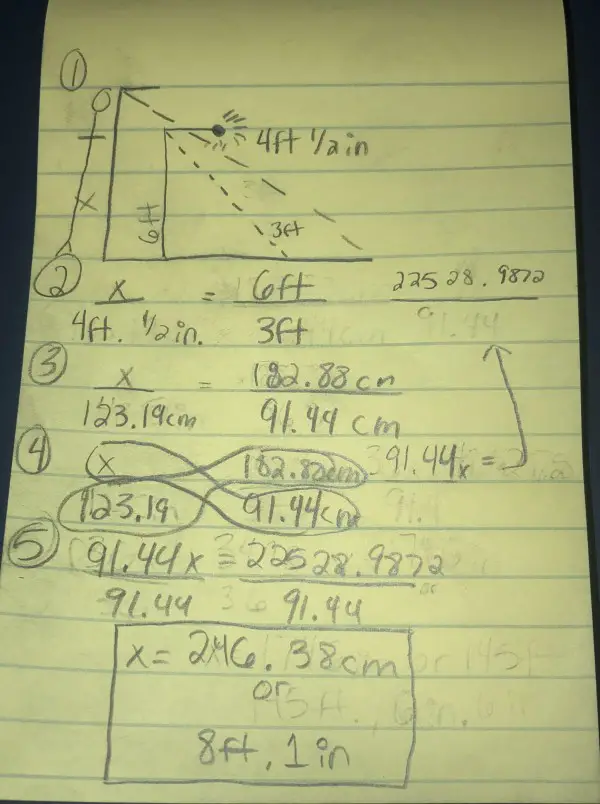 ①
4ft 1/2 in
x
6ft
3ft
② x/4ft. 1/2 in. = 6ft/3ft
22528.9872/91.44
③ x/123.19cm = 182.88cm/91.44 cm
④ x/123.19 182.88cm/91.44cm
91.44x =
⑤ 91.44x/91.44 = 22528.9872/91.44
x = 246.38cm
or
8ft. 1 in